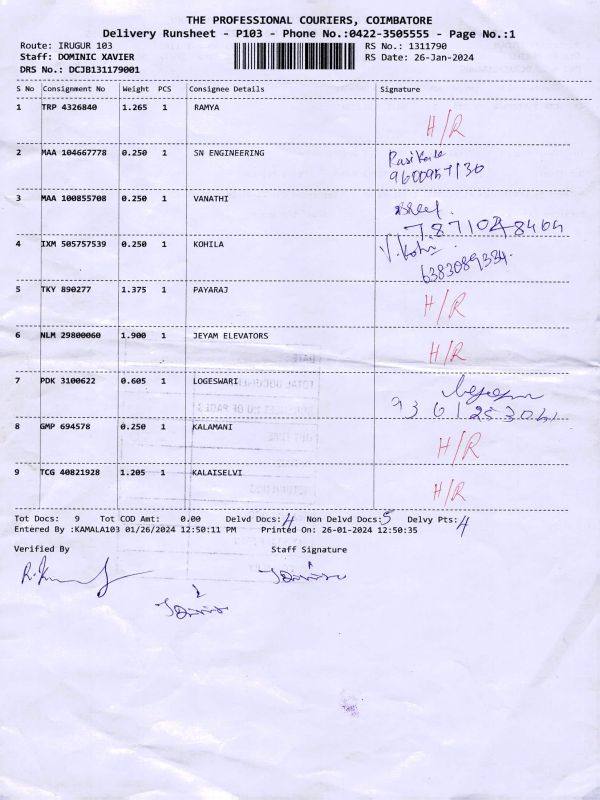 THE PROFESSIONAL COURIERS, COIMBATORE
Delivery Runsheet - P103 - Phone No.:0422-3505555 - Page No.:1
Route: IRUGUR 103 RS No.: 1311790
Staff: DOMINIC XAVIER RS Date: 26-Jan-2024
DRS No.: DCJB131179001
S No Consignment No Weight PCS Consignee Details Signature
1 TRP 4326840 1.265 1 RAMYA H/R
2 MAA 104667778 0.250 1 SN ENGINEERING
9600957130
3 MAA 100855708 0.250 1 VANATHI
4 IXM 505757539 0.250 1 KOHILA
6383089334.
5 TKY 890277 1.375 1 PAYARAJ H/R
6 NLM 29800060 1.900 1 JEYAM ELEVATORS H/R
7 PDK 3100622 0.605 1 LOGESWARI
8 GMP 694578 0.250 1 KALAMANI H/R
9 TCG 40821928 1.205 1 KALAISELVI H/R
Tot Docs: 9 Tot COD Amt: 0.00 Delvd Docs: 4 Non Delvd Docs: 5 Delvy Pts: 4
Entered By :KAMALA103 01/26/2024 12:50:11 PM Printed On: 26-01-2024 12:50:35
Verified By Staff Signature